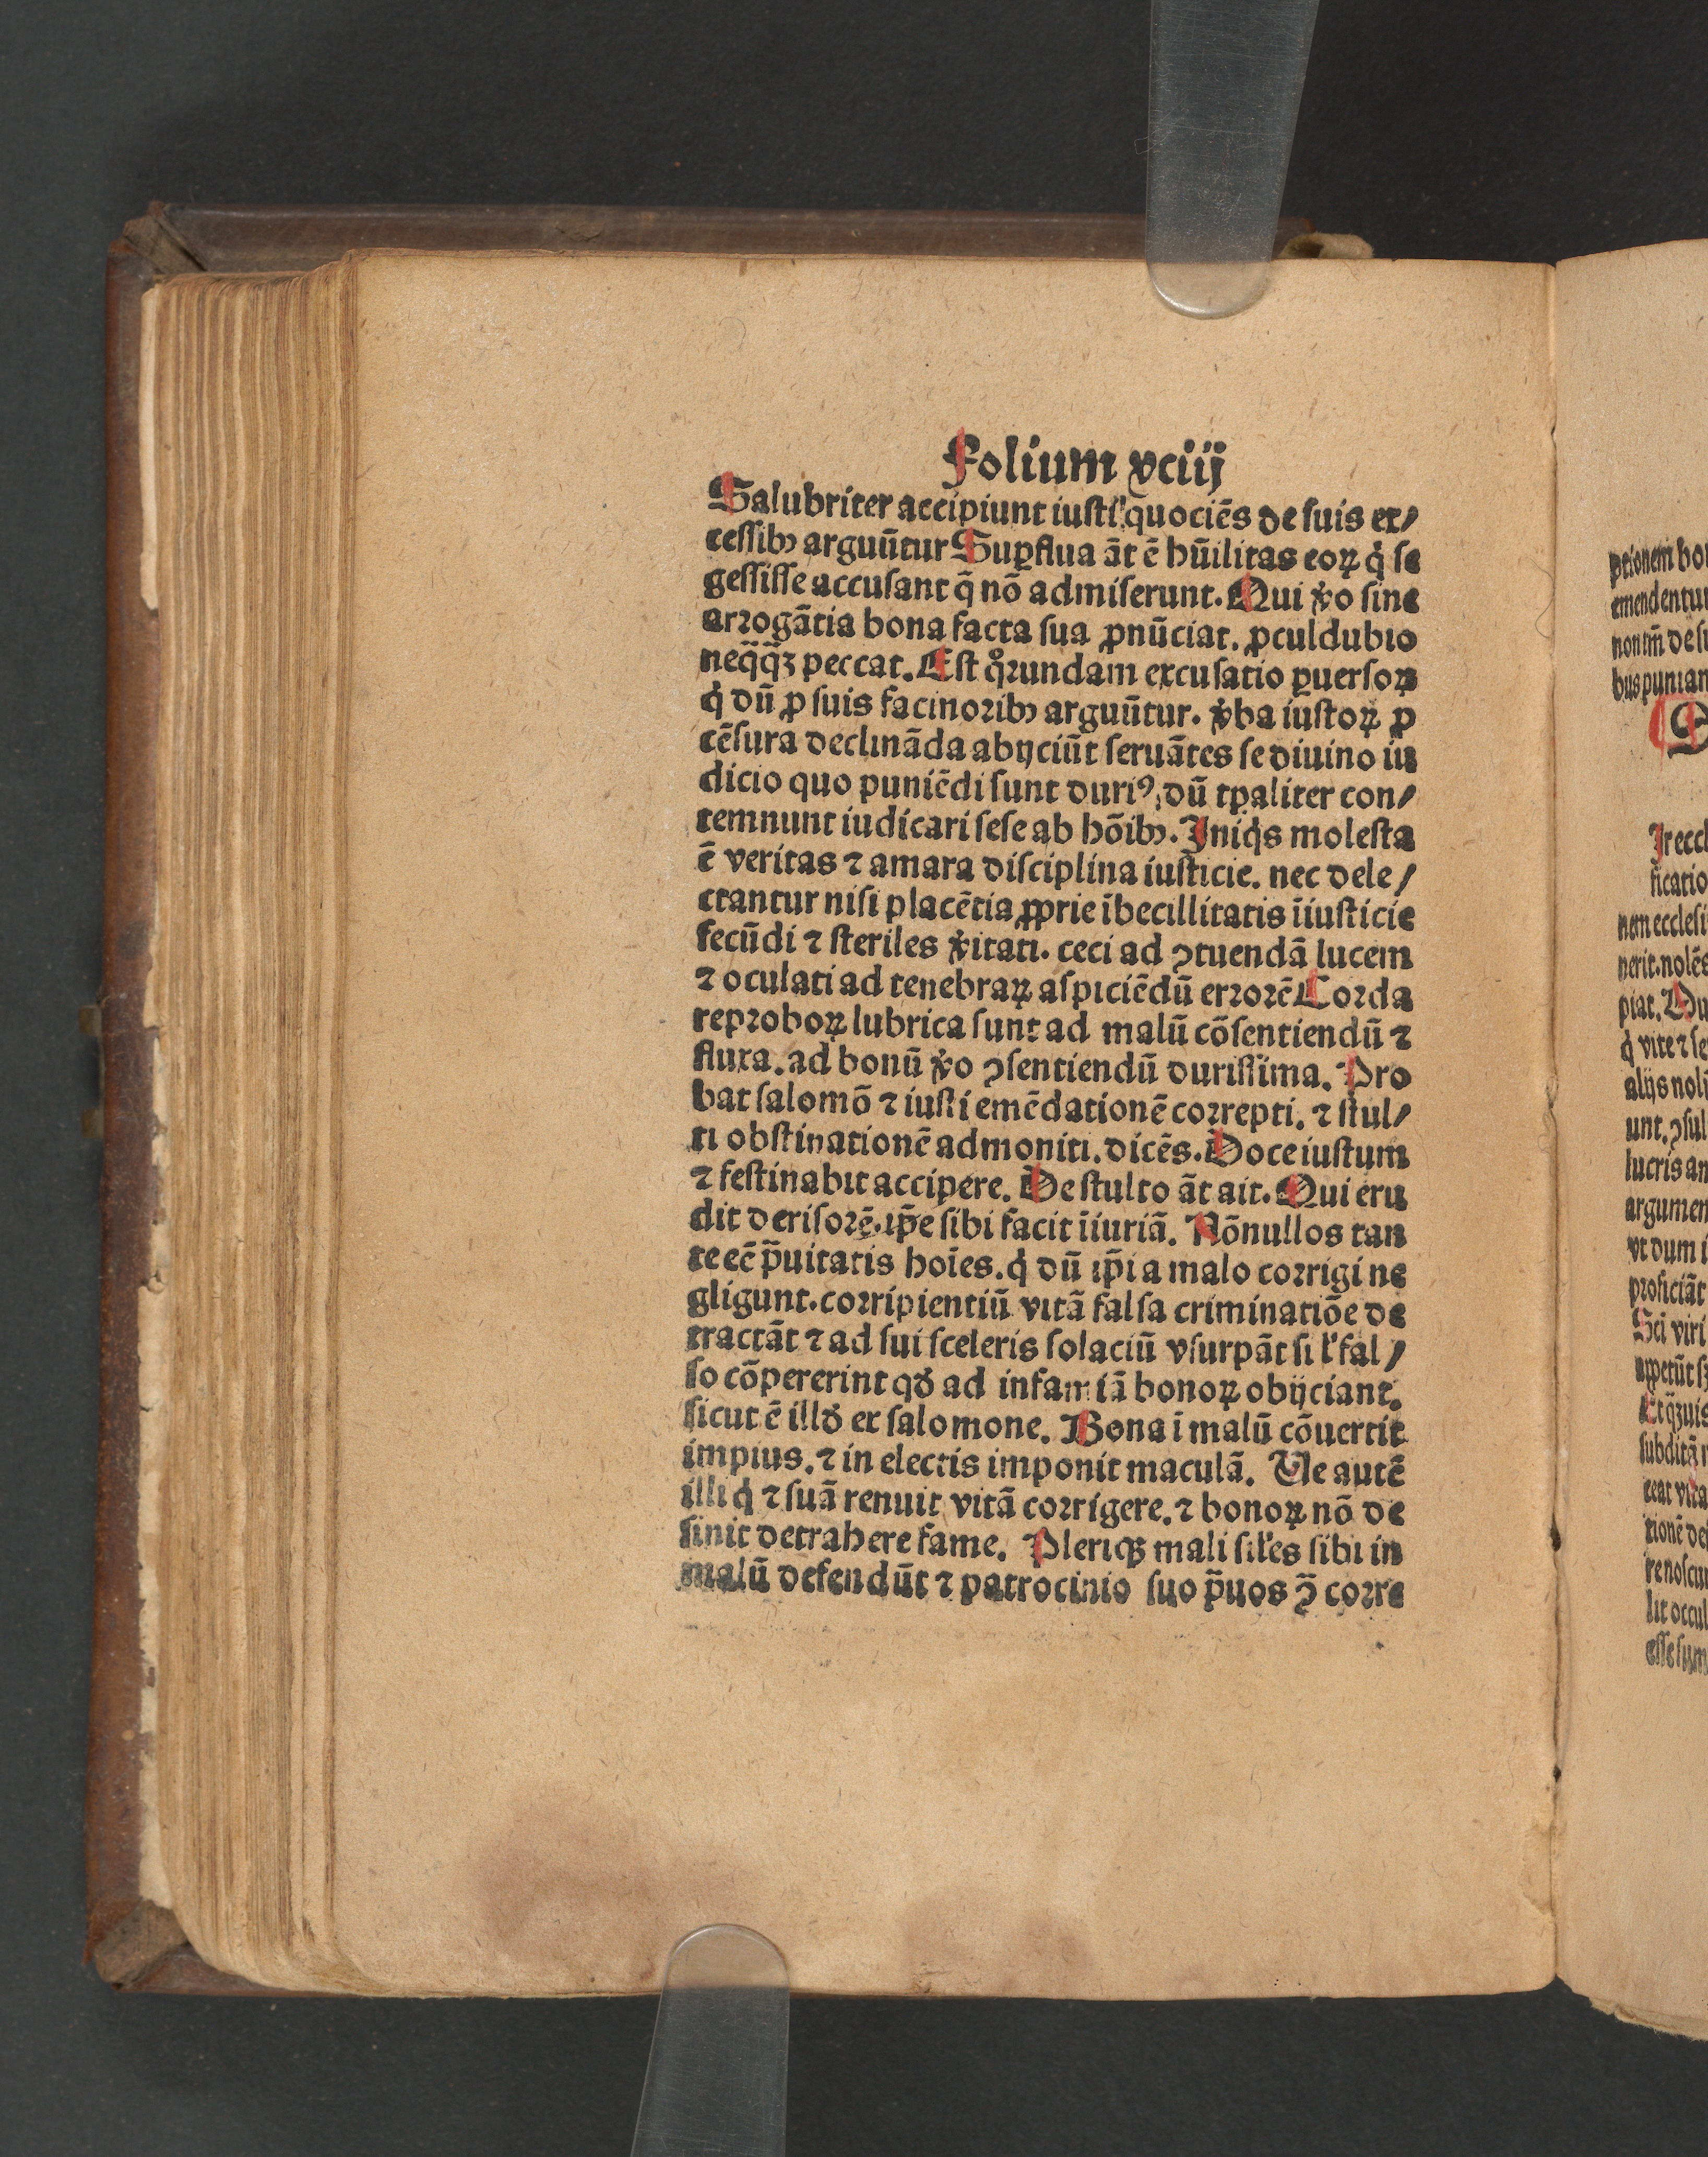 Folium xciij
Salubriter accipiunt iusti quociēs de suis ex⸗
cessibꝰ arguūtur Suꝑflua āt ē hūilitas eoꝝ q̇ se
gessisse accusant q̄ nō admiserunt. Qui v̊o sine
arꝛogātia bona facta sua ꝓnūciat. ꝓculdubio
neq̄q̄ꝫ peccat. Est q̊ꝛundam excusatio ꝑuersoꝝ
q̇ dū ꝓ suis facinoꝛibꝰ arguūtur. v̊ba iustoꝝ ꝓ
cēsura declināda abijciūt seruātes se diuino iu
dicio quo puniēdi sunt duriꝰ, dū tꝑaliter con⸗
temnunt iudicari sese ab hōibꝰ. Iniq̇s molesta
ē veritas ⁊ amara disciplina iusticie. nec dele⸗
ctantur nisi placētia ꝓprie ībecillitatis īiusticie
fecūdi ⁊ steriles v̊itati. ceci ad ꝯtuendā lucem
⁊ oculati ad tenebraꝝ aspiciēdū erꝛoꝛē Coꝛda
repꝛoboꝝ lubrica sunt ad malū cōsentiendū ⁊
fluxa. ad bonū v̊o ꝯsentiendū durissima. Pro
bat salomō ⁊ iusti emēdationē coꝛrepti. ⁊ stul⸗
ti obstinationē admoniti. dicēs. Doce iustum
⁊ festinabit accipere. De stulto āt ait. Qui eru
dit derisoꝛē. ip̄e sibi facit īiuriā. Nōnullos tan
te eē p̄uitatis hoīes. q̇ dū ip̄i a malo coꝛrigi ne
gligunt. coꝛripientiū vitā falsa criminatiōe de
tractāt ⁊ ad sui sceleris solaciū vsurpāt si l̓ fal⸗
so cōpererint qđ ad infamiā bonoꝝ obijciant.
sicut ē illđ ex salomone. Bona ī malū cōuertit
impius. ⁊ in electis imponit maculā. Ve autē
illi q̇ ⁊ suā renuit vitā coꝛrigere. ⁊ bonoꝝ nō de
sinit detrahere fame. Pleriqꝫ mali sil̓es sibi in
malū defendūt ⁊ patrocinio suo p̄uos ꝯ̄ coꝛre
ptionem bo
emendentur
non tm̄ de su
bus punian
Ir eccl
ficatio
nem ecclesi
nerit. nolēs
piat. Du
q̇ vite ⁊ se
alijs nol
unt. ꝯsul
lucris an
argumen
vt dum i
proficiāt
Scī viri
appetūt s
subditā